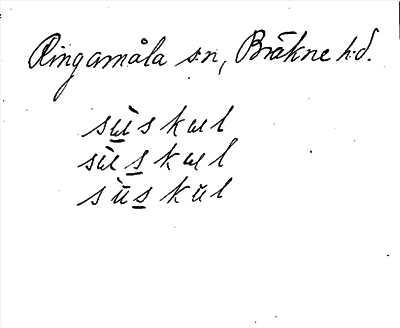 Ringamåla sn, Bräkne hd.
sɯ̲̀skɯl
sɯ̀s̲kɯl
sùs̲kŭl